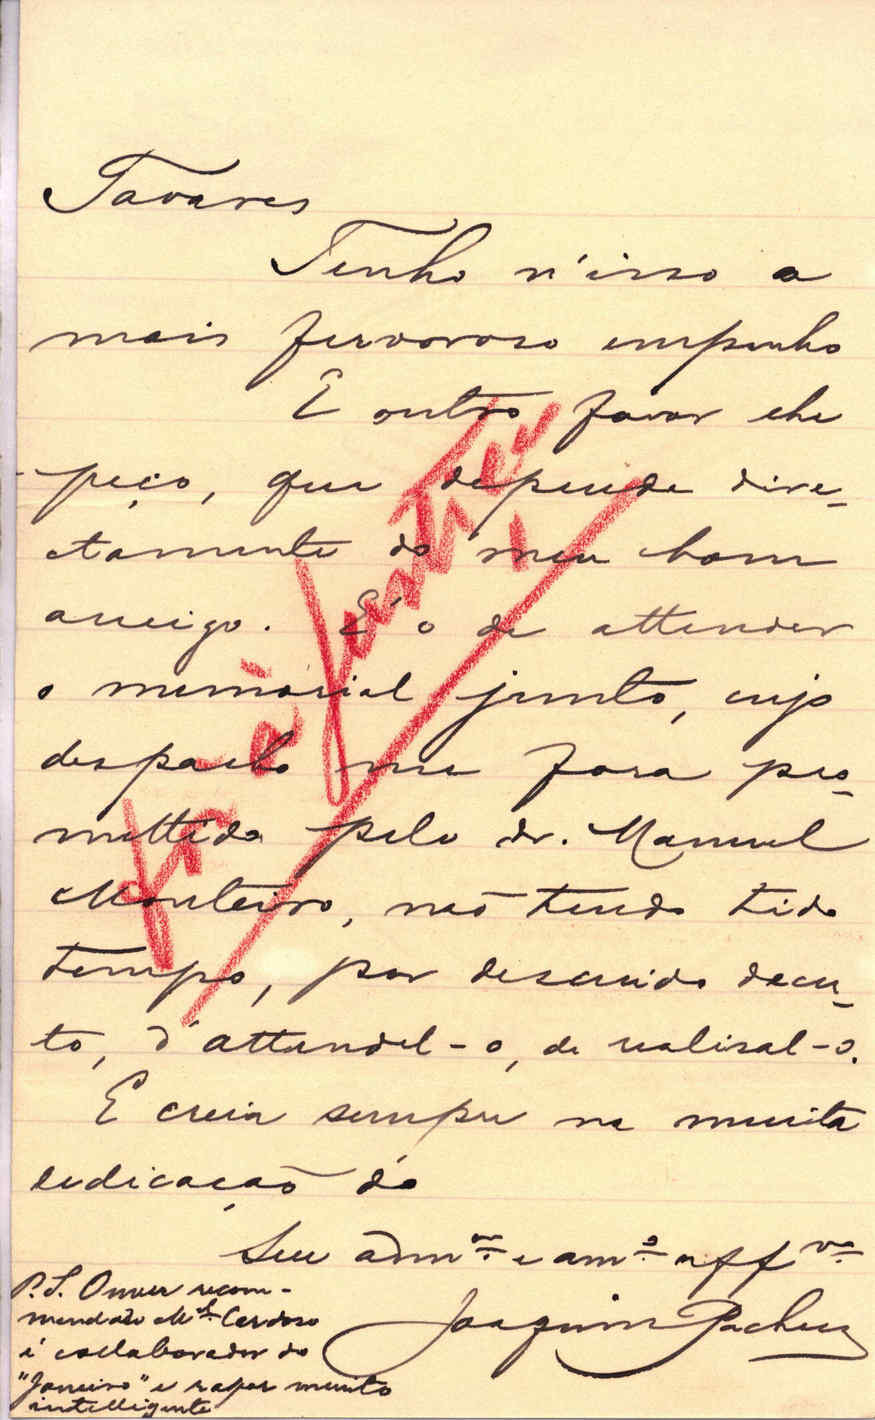 Tavares
Tenho n'isso o
mais fervoroso empenho
E outro favor lhe
peço, que depende dire-
ctamente do meu bom
amigo. É o de attender
o memorial junto, cujo
despacho me fora pro-
mettido pelo dr. Manuel
Monteiro, não tendo tido
tempo, por descuido decer-
to, d'attendel-o, de realisal-o.
E creia sempre na muita
dedicação do
Seu admor. e amo. affvo.
Joaquim Pacheco
P.S. O meu recom-
mendado Mel. Cardoso
é collaborador do
"Janeiro" e rapaz muito
intelligente
à Justiça